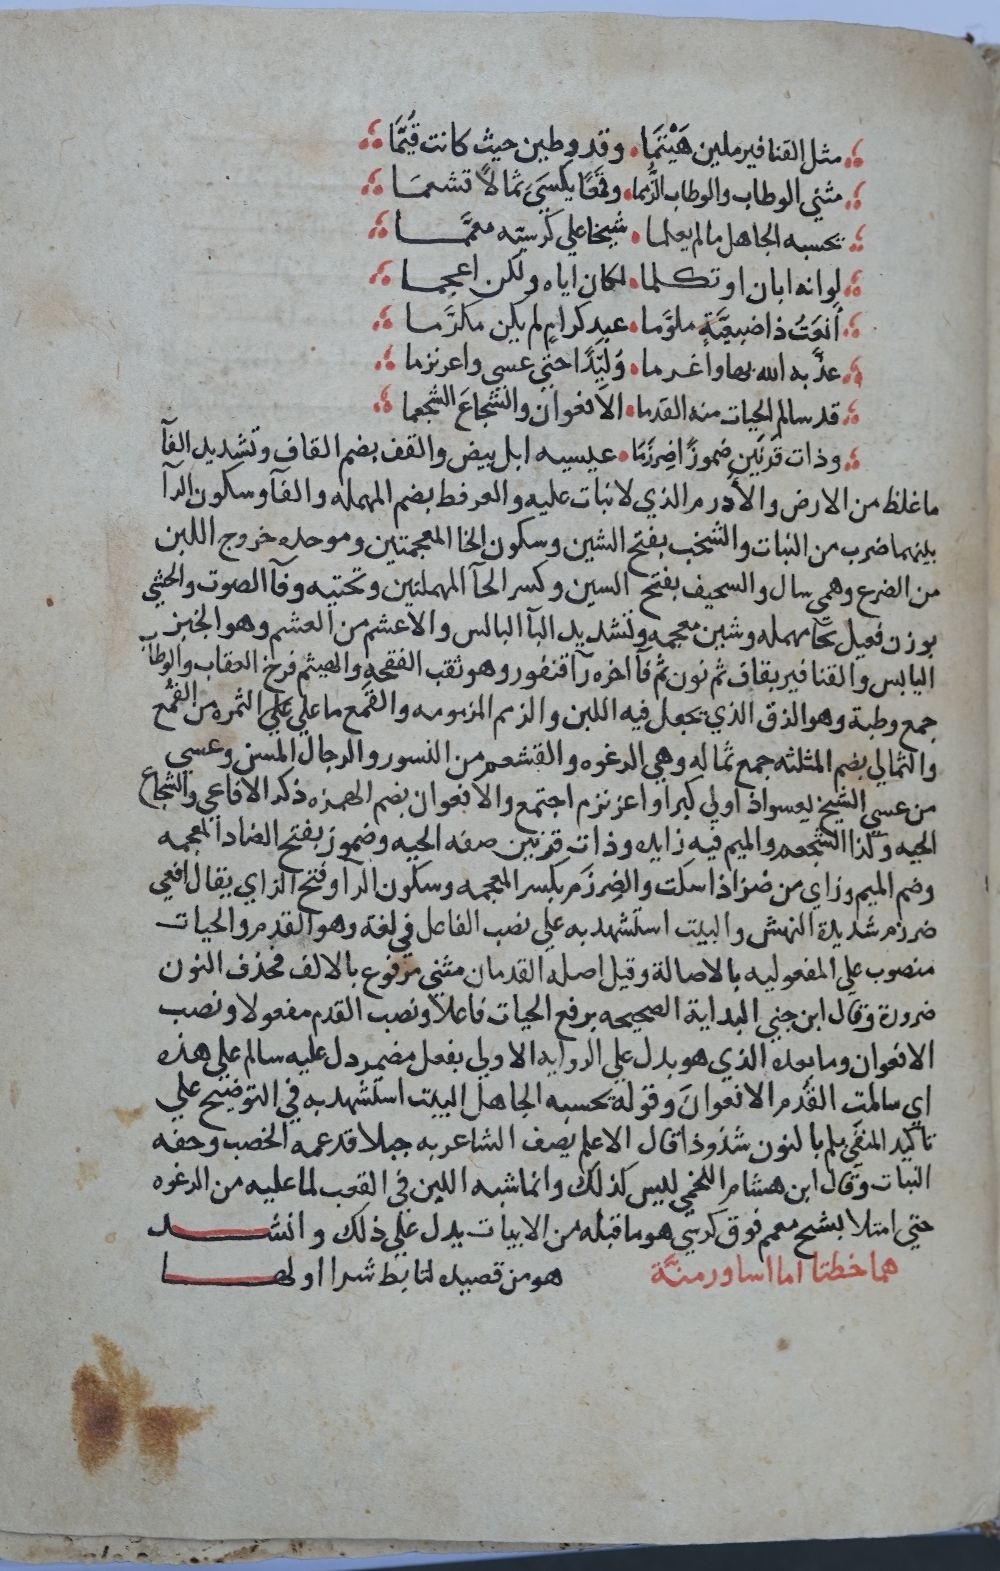 مثل القنافير ملين هَيْثَما وقد وطين حيث كانت قُيَّمَا
مثني الوطاب والوطاب الزُّمما وقمَعًا يكسيَ ثمالاً قشعمَا
تحسبه الجاهل مالم يعلما شيخا علي كرسيّه معمَّما
لوانه ابان او تكلما لكان اياه ولكن اعجما
أنعَتُ ذاضيعَّةٍ ملوَّما عبد كرامٍ لم يكن مكرَّما
عذَّبه الله بها واغرما وُلَيِّدًا حتي عسي واعرنزما
قد سالم الحيات منه القدما الافعوان والشجاعَ الشجعما
وذات قرنَين ضموزًا ضِرزَمَا عيسيه ابل بيض والقف بضم القاف وتشديد الفآ
ماغلظ من الارض والأدرم الذي لانبات عليه والعرفط بضم المهمله والفآ وسكون الرآ
بينهما ضرب من النبات والشخب بفتح الشين وسكون الخا المعجمتين وموحده خروج اللبن
من الضرع وهمي سال والسحيف بفتح السين وكسر الحآ المهملتين وتحتيه وفآ الصوت والحثي
بوزن فعيل بحا مهمله وشين معجمه وتشديد اليآ اليابس والاعشم من العشم وهو الخبز
اليابس والقنافير بقاف ثم نون ثم فآ اخره رآ قنفور وهو ثقب الفقحه والهيثم فرخ العقاب والوطآب
جمع وطبة وهو الذق الذي يجعل فيه اللبن والزمم المزمومه والقمع ما علي علي الثمره من القمع
والثمالي بضم المثلثه جمع ثماله وهي الرغوه والقشعم من النسور والرجال المسن وعسي
من عسي الشيخ يعسو اذا ولي كبرا واعرنزم اجتمع والافعوان بضم الهمزه ذكر الافاعي والشجاع
الحيه وكذا الشجعم والميم فيه زايده وذات قرنين صفه الحيه وضموز بفتح الضاد المعجمه
وضم الميم وزاي من ضمز اذا سكت والضِرزَم بكسر المعجمه وسكون الرآ وفتح الزاي يقال افعي
ضرزم شديدة النهش والبيت استشهد به علي نصب الفاعل في لغة وهو القدم والحيات
منصوب علي المفعوليه بالاصالة وقيل اصله القدمان مثني مرفوع بالالف فحذف النون
ضرورة وقال ابن جني البداية الصحيحه برفع الحيات فاعلا ونصب القدم مفعولا ونصب
الافعوان وما بعده الذي هو بدل علي الروايه الاولي بفعل مضمر دل عليه سالم علي هذه
اي سالمت القدم الافعوانَ وقوله يحسبه الجاهل البيت استشهد به في التوضيح علي
تاكيد المنفي بلم بالنون شذوذا قال الاعلم يصف الشاعر به جبلا قد عمه الخصب وحفه
النبات وقال ابن هشام اللخمي لييس كذلك وانما شبه اللبن في القعب لما عليه من الرغوه
حتي امتلا بشيخ معمم فوق كرسي هو ما قبله من الابيات يدل علي ذلك وانشد
هما خطتا اما اسار ومنَّة هو من قصيده لتابط شرا اولها